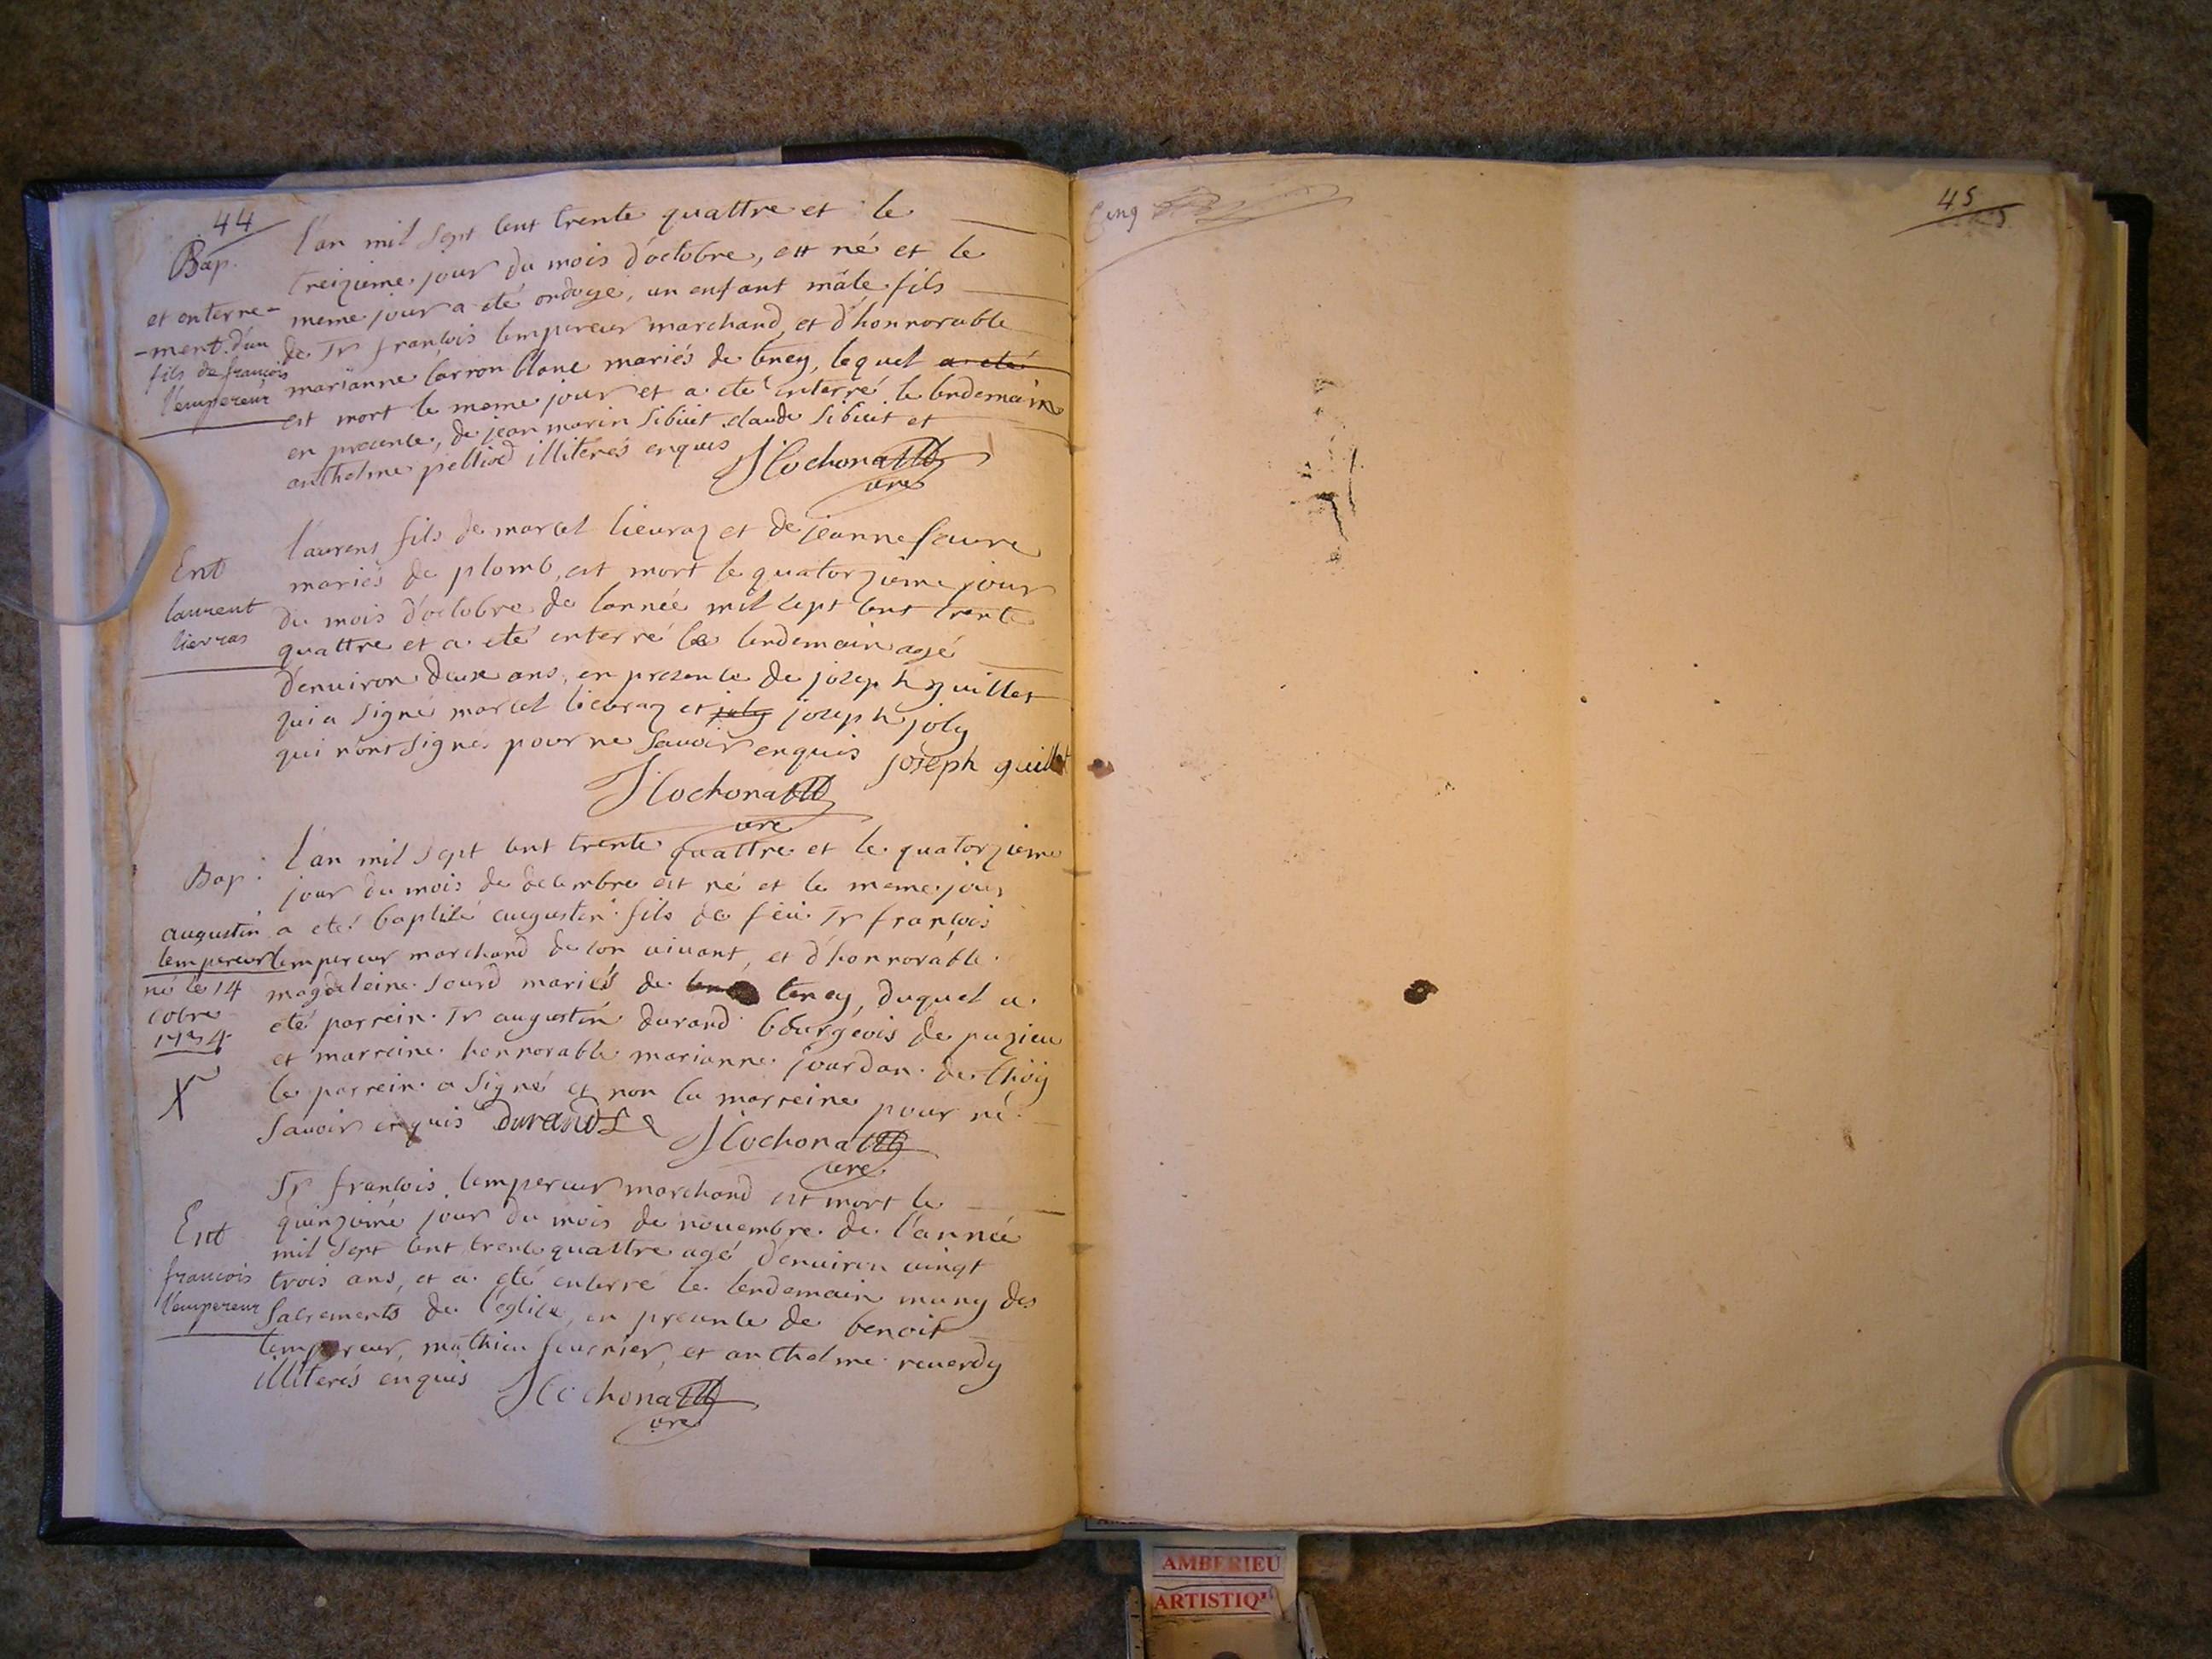 44
Bap.
et enterre-
-ment d'un
fils de francois
l'empereur
l'an mil sept cent trente quattre et le
treizieme jour du mois d'octobre, est né et le
meme jour a eté ondoyé, un enfant mâle fils
de Sr francois lempereur marchand, et d'honnorable
marianne carron blanc mariés de teney, lequel a eté
est mort le meme jour et a eté enterré le lendemain
en presence, de jean marin sibuet claude sibuet et
anthelme pelliod illiterés enquis
J Cochonat
curé
Ent
laurent
lievras
laurens fils de marcel lieuraz et de jeanne faure
mariés de plomb, est mort le quatorzieme jour
du mois d'octobre de lannée mil sept cent trente
quattre et a eté enterré le lendemain agé
d'enuiron deux ans, en presence de joseph guillet
qui a signé marcel lieuraz et joly joseph joly
qui n'ont signés pour ne sauoir enquis
joseph guillet
J Cochonat
curé
Bap.
augustin
lempereur
né le 14
xobre
1734
X
l'an mil sept cent trente quattre et le quatorzieme
jour du mois de decembre est né et le meme jour
a eté baptisé augustin fils de feu Sr francois
lempereur marchand de son uiuant, et d'honnorable
magdeleine sourd mariés de teney, duquel a
eté parrein Sr augustin durand bourgeois de puzieu
et marreine honnorable marianne jourdan de choy
le parrein a signé et non la marreine pour ne
sauoir enquis Durand
J Cochonat
curé
Ent
francois
l'empereur
Sr francois lempereur marchand est mort le
quinzieme jour du mois de nouembre de l'année
mil sept cent trente quattre agé d'enuiron uingt
trois ans, et a eté enterré le lendemain muny des
sacrements de l'eglise, en presence de benoit
lempereur, mathieu fournier, et anthelme reuerdy
illiterés enquis
J Cochonat
curé
Cinq
45
AMBERIEU
ARTISTIQ